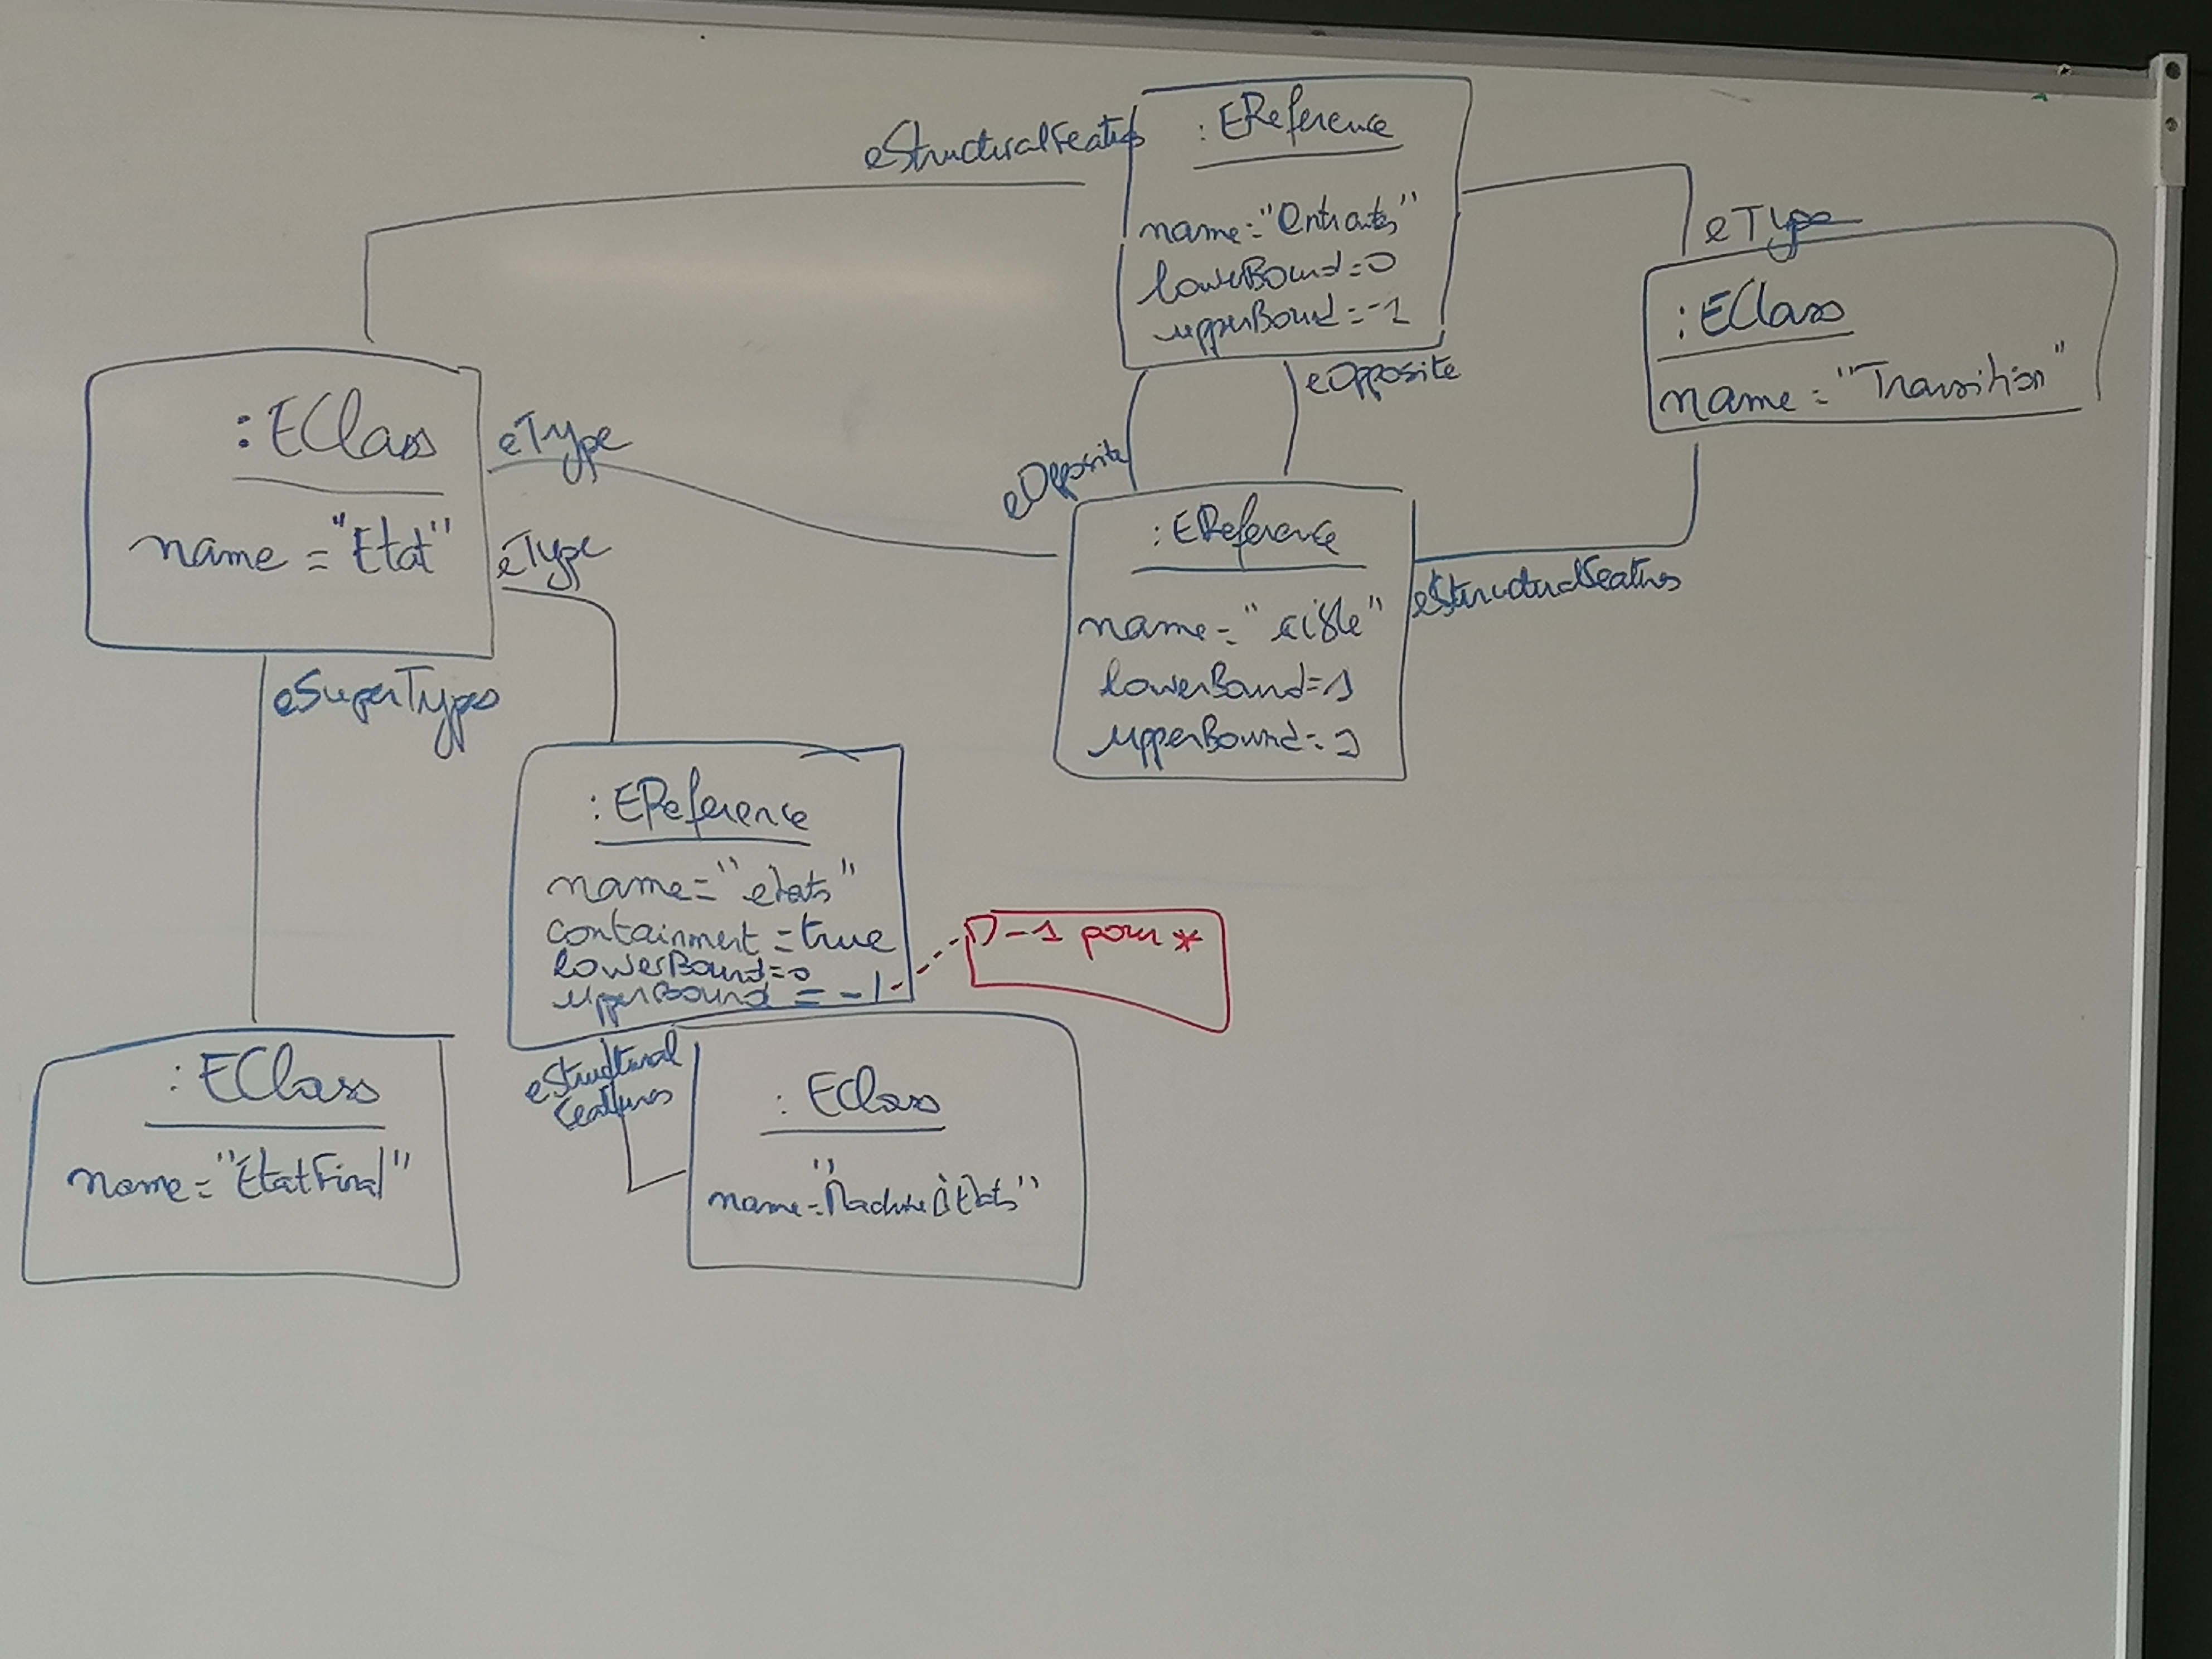 eStructuralFeatures
: EReference
name="Entrantes"
lowerBound=0
upperBound=-1
eType
: EClass
name="Transition"
eOpposite
eOpposite
: EClass
name="Etat"
eType
eType
eSuperTypes
: EReference
name="cible"
lowerBound=1
upperBound=1
eStructuralFeatures
: EReference
name="etats"
containment=true
lowerBound=0
upperBound=-1
-1 pour *
eStructural
Features
: EClass
name="EtatFinal"
: EClass
name="MachineÀEtats"